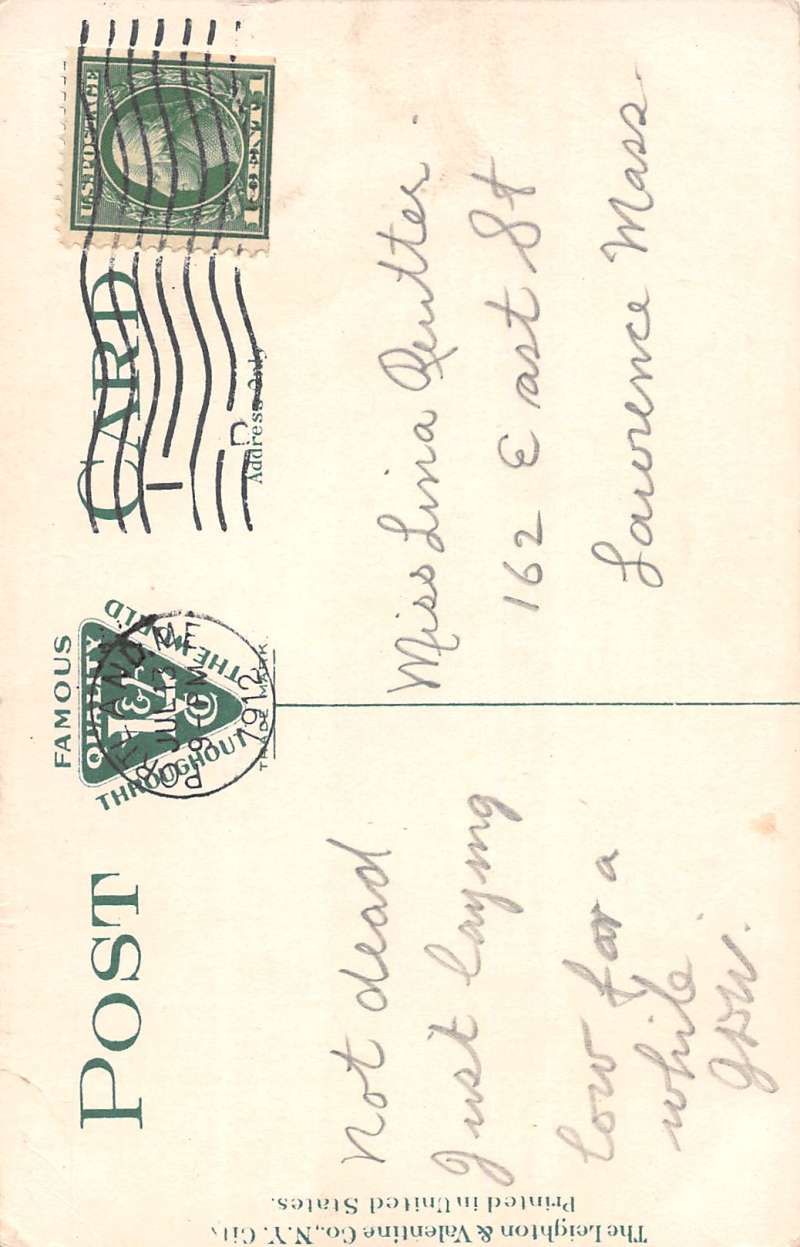 POST CARD
FAMOUS
QUALITY
L & V Co
THROUGHOUT THE WORLD
TRADE MARK
JUL 13
9- PM
1912
U.S. POSTAGE
1 CENT 1
Address Only
Not dead
Just laying
low for a
while
Miss Lina Reutter.
162 East St
Lawrence Mass.
The Leighton & Valentine Co., N.Y. City
Printed in United States.